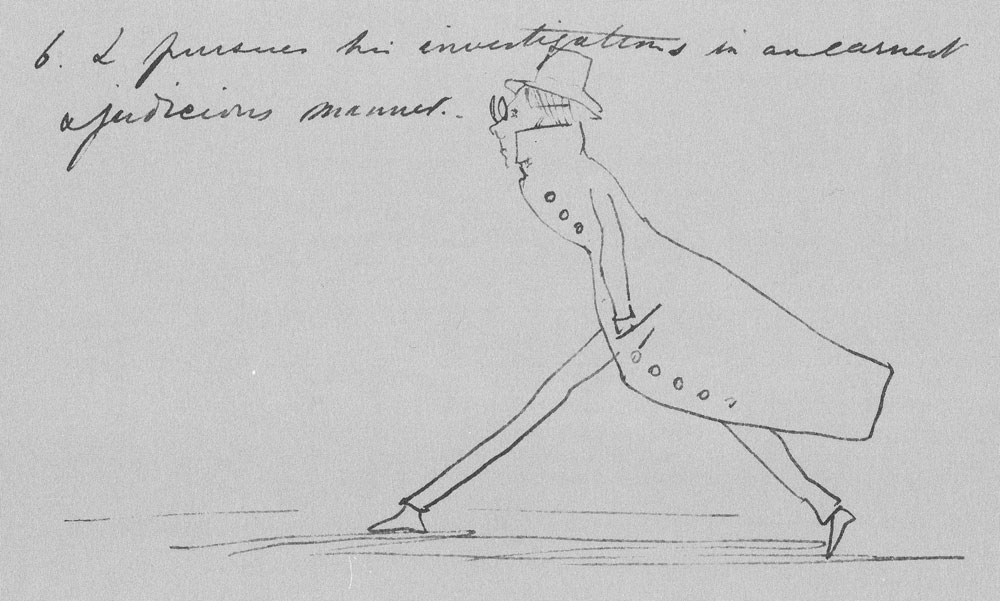 6. L pursues his investigations in an earnest
& judicious manner.